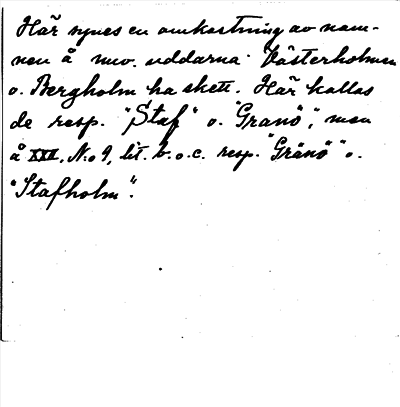 Här synes en omkastning av nam-
nen å nuv. uddarna Västerholmen
o. Bergholm ha skett. Här kallas
de resp. "Staf" o. "Granö", men
å XXI. N:o 9, lit. b. o. c. resp. "Gränö" o.
"Stafholm".